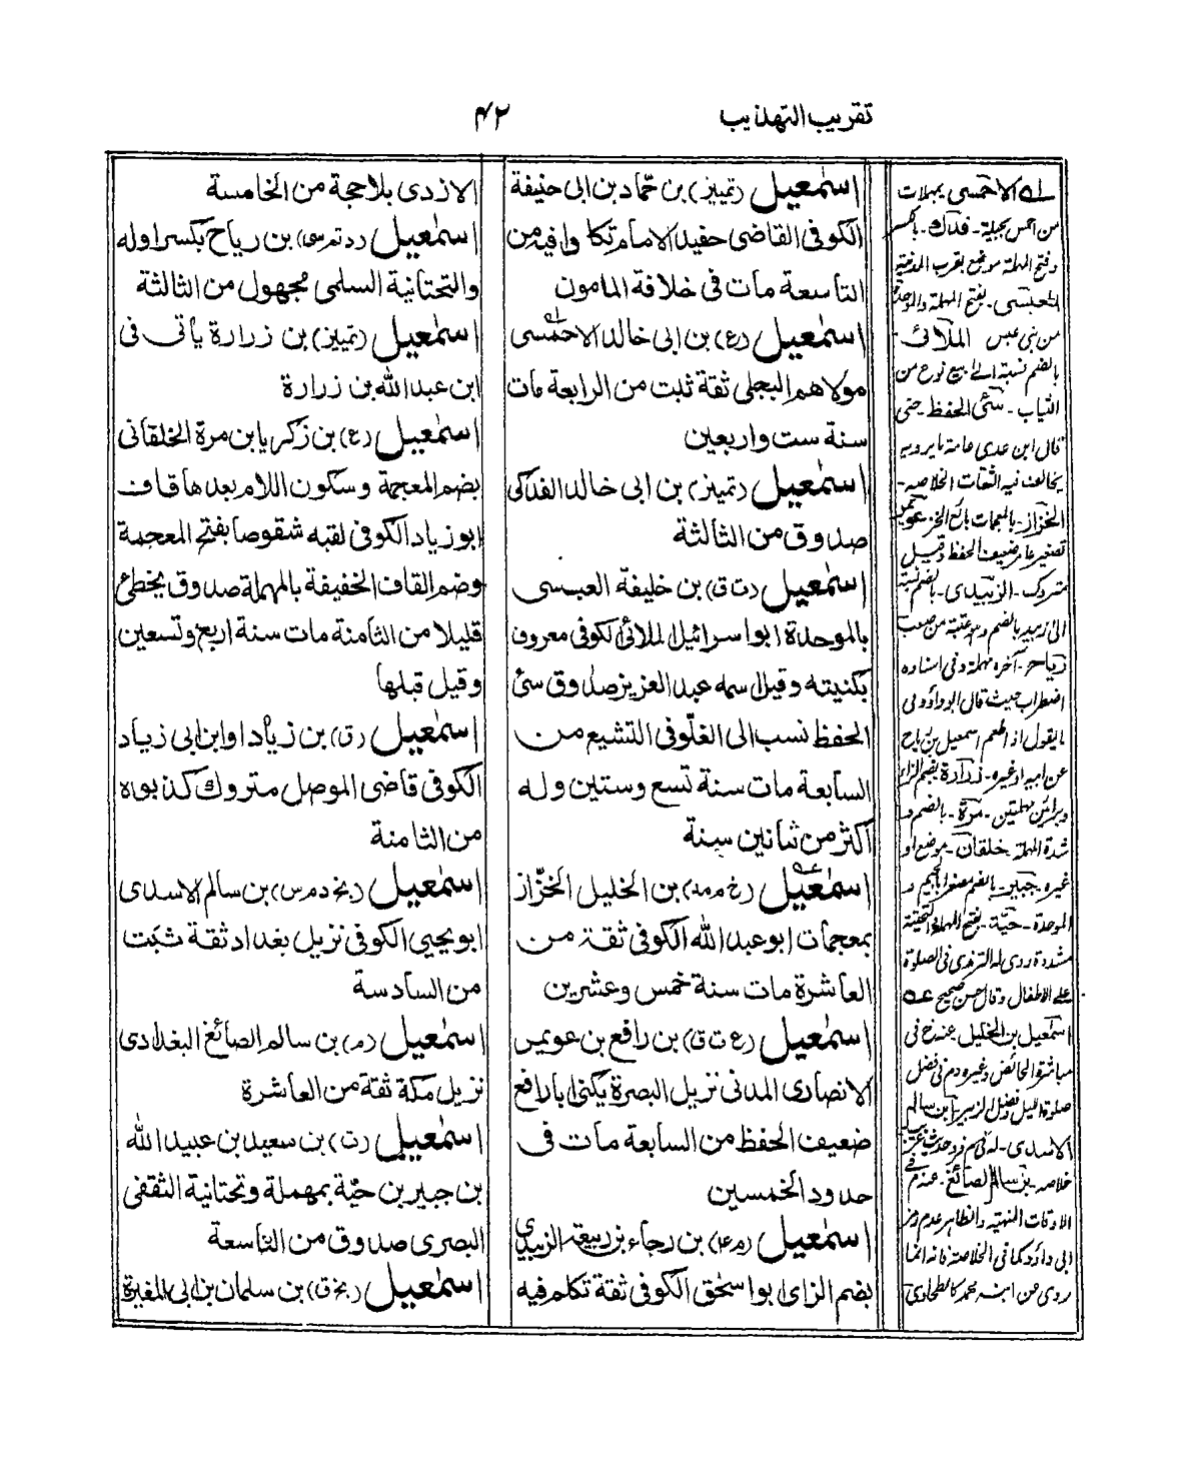 تقريب التهذيب
۴۲
اسمٰعيل (تمييز) بن حماد بن ابى حنيفة
الكوفى القاضى حفيد الامام تكلموا فيه من
التاسعة مات فى خلافة المامون
اسمٰعيل (ع) بن ابى خالد الاحمسى
مولاهم البجلى ثقة ثبت من الرابعة مات
سنة ست واربعين
اسمٰعيل (تمييز) بن ابى خالد الفدكى
صدوق من الثالثة
اسمٰعيل (ت ق) بن خليفة العبسى
بالموحدة ابو اسرائيل الملائى الكوفى معروف
بكنيته وقيل اسمه عبد العزيز صدوق سئ
الحفظ نسب الى الغلو فى التشيع من
السابعة مات سنة تسع وستين وله
اكثر من ثمانين سنة
اسمٰعيل (خ م مد) بن الخليل الخزّاز
بمعجمات ابو عبد الله الكوفى ثقة من
العاشرة مات سنة خمس وعشرين
اسمٰعيل (ع ت ق) بن رافع بن عويمر
الانصارى المدنى نزيل البصرة يكنى ابا رافع
ضعيف الحفظ من السابعة مات فى
حدود الخمسين
اسمٰعيل (م عد) بن رجاء بن ربيعة الزبيدى
بضم الزاى ابو اسحٰق الكوفى ثقة تكلم فيه
الازدى بلا حجة من الخامسة
اسمٰعيل (د تم سى) بن رياح بكسر اوله
والتحتانية السلمى مجهول من الثالثة
اسمٰعيل (تمييز) بن زرارة يأتى فى
ابن عبد الله بن زرارة
اسمٰعيل (ع) بن زكريا بن مرة الخلقانى
بضم المعجمة وسكون اللام بعدها قاف
ابو زياد الكوفى لقبه شقوصا بفتح المعجمة
وضم القاف الخفيفة بالمهملة صدوق يخطئ
قليلا من الثامنة مات سنة اربع وتسعين
وقيل قبلها
اسمٰعيل (ق) بن زياد او ابن ابى زياد
الكوفى قاضى الموصل متروك كذبوه
من الثامنة
اسمٰعيل (بخ د م س) بن سالم الاسدى
ابو يحيى الكوفى نزيل بغداد ثقة ثبت
من السادسة
اسمٰعيل (م) بن سالم الصائغ البغدادى
نزيل مكة ثقة من العاشرة
اسمٰعيل (ت) بن سعيد بن عبيد الله
بن جبير بن حيّة بمهملة وتحتانية الثقفى
البصرى صدوق من التاسعة
اسمٰعيل (بخ ق) بن سلمان بن ابى المغيرة
الاحمسى بمهملات
من احمس بجيلة - فدك -
وفتح المهملة موضع بقرب المدينة
العبسى - بفتح المهملة والموحدة
من بنى عبس الملائى -
بالضم نسبة الى بيع نوع من
الثياب - سئى الحفظ حتى
قال ابن عدى عامة ما يرويه
يخالف فيه الثقات الخلاصه -
الخزاز - بالمعجمات بائع الخز عويمر
تصغير عامر ضعيف الحفظ وقيل
متروك - الزبيدى - بالضم نسبة
الى زبيد بالضم
رياح - آخره مهملة وفى اسناده
اضطراب حيث قال ابو داؤد فى
ما يقول اذا طعم اسمعيل بن رياح
عن ابيه او غيره - زرارة بضم الزاى
وبرائين مهملتين - مرة - بالضم و
شدة المهملة خلقان - موضع او
غيره - جبير - بالضم مصغرا بالجيم و
الموحدة - حيّة - بفتح المهملة والتحتية
مشددة روى له الترمذى فى الصلوة
على الاطفال وقال حسن صحيح عه
اسمعيل بن الخليل عند خ فى
مباشرة الحائض وغيره وم فى فضل
صلوة الليل وفضل الزبير ابن سالم
الاسدى - له فى م فرد حديث
خلاصه - بن سالم الصائغ - عند م فى
الاوقات المنهية والظاهر عدم رمز
ابى داؤد كما فى الخلاصة فانه انما
روى عن ابنه محمد كالطحاوى